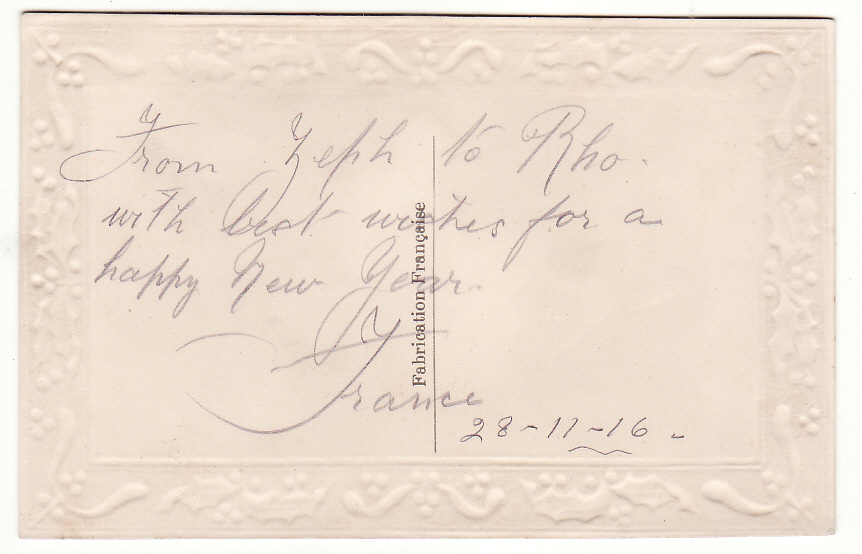 From Zeph to Rho.
with best wishes for a
happy New Year.
France
28-11-16.
Fabrication Française